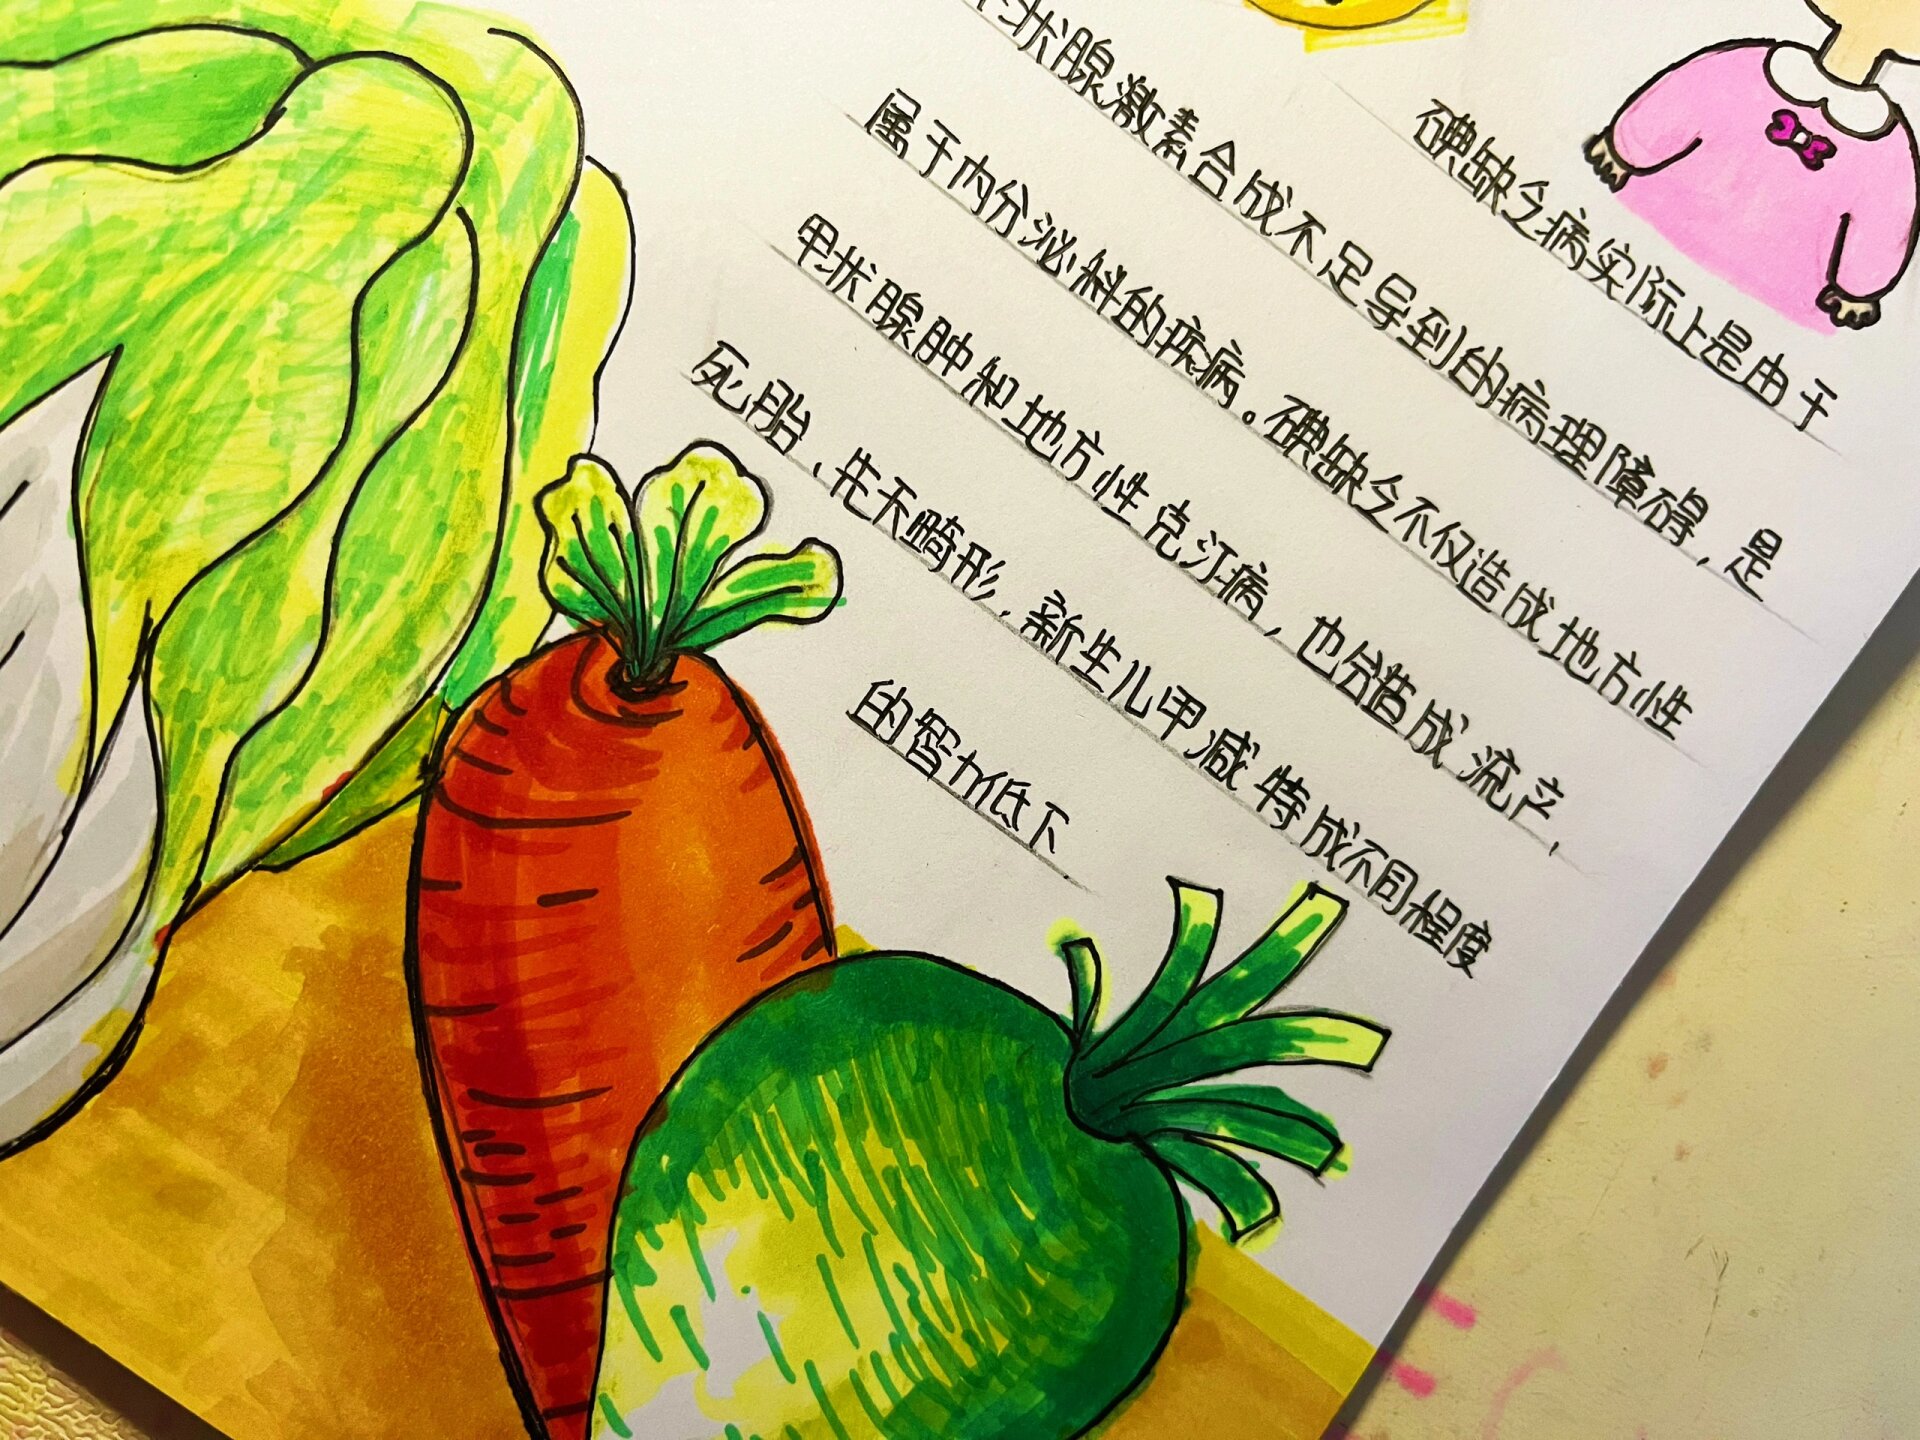 碘缺乏病实际上是由于
状腺激素合成不足导到的病理障碍，是
属于内分泌科的疾病。碘缺乏不仅造成地方性
甲状腺肿和地方性克汀病，也会造成流产，
死胎、先天畸形，新生儿甲减特成不同程度
的智力低下